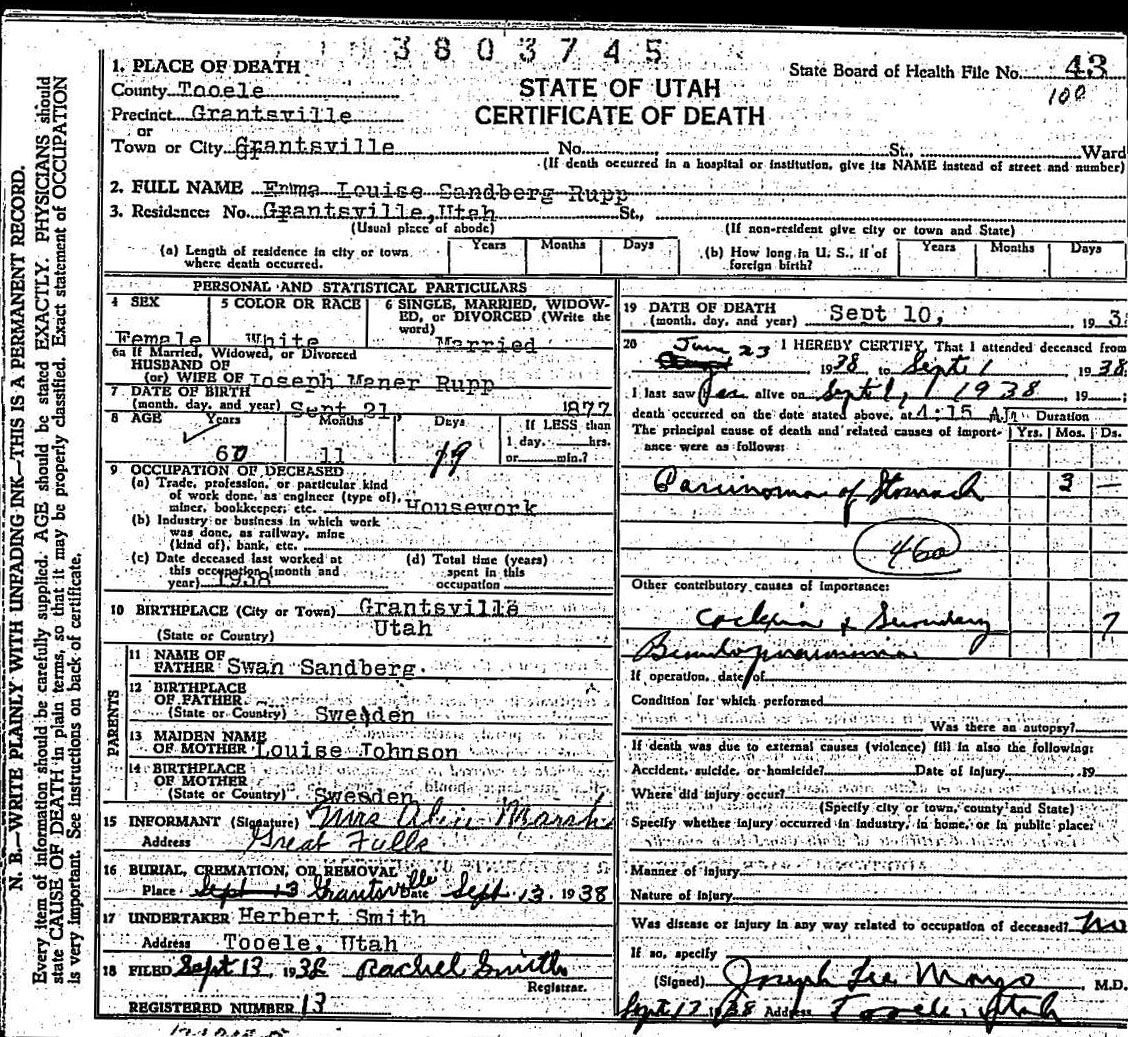 3803745
1. PLACE OF DEATH
State Board of Health File No. 43
100
County Tooele
STATE OF UTAH
Precinct Grantsville
CERTIFICATE OF DEATH
or
Town or City Grantsville No. St., Ward
(If death occurred in a hospital or institution, give its NAME instead of street and number)
2. FULL NAME Emma Louise Sandberg Rupp
3. Residence: No. Grantsville, Utah St.,
(Usual place of abode) (If non-resident give city or town and State)
(a) Length of residence in city or town where death occurred. Years Months Days
(b) How long in U. S., if of foreign birth? Years Months Days
PERSONAL AND STATISTICAL PARTICULARS
4 SEX
Female
5 COLOR OR RACE
White
6 SINGLE, MARRIED, WIDOWED, or DIVORCED (Write the word)
Married
6a If Married, Widowed, or Divorced
HUSBAND OF
(or) WIFE OF Joseph Maner Rupp
7 DATE OF BIRTH
(month, day, and year) Sept 21, 1877
8 AGE Years Months Days If LESS than
1 day, hrs.
or min.?
60 11 19
9 OCCUPATION OF DECEASED
(a) Trade, profession, or particular kind
of work done, as engineer (type of),
miner, bookkeeper, etc. Housework
(b) Industry or business in which work
was done, as railway, mine
(kind of), bank, etc.
(c) Date deceased last worked at
this occupation (month and
year) 1938
(d) Total time (years)
spent in this
occupation
10 BIRTHPLACE (City or Town) Grantsville
(State or Country) Utah
PARENTS
11 NAME OF
FATHER Swan Sandberg
12 BIRTHPLACE
OF FATHER
(State or Country) Sweden
13 MAIDEN NAME
OF MOTHER Louise Johnson
14 BIRTHPLACE
OF MOTHER
(State or Country) Sweden
15 INFORMANT (Signature) Mrs Marsh
Address Great Falls
16 BURIAL, CREMATION, OR REMOVAL
Place Sept 13 Grantsville Date Sept 13, 1938
17 UNDERTAKER Herbert Smith
Address Tooele, Utah
18 FILED Sept 13, 1938 Rachel Smith
Registrar.
REGISTERED NUMBER 13
19 DATE OF DEATH
(month, day, and year) Sept 10, 193
20 I HEREBY CERTIFY, That I attended deceased from
June 23, 1938, to Sept 1 1938
I last saw alive on Sept 1, 1938 19
death occurred on the date stated above, at 4:15 A.m. Duration
The principal cause of death and related causes of importance were as follows: Yrs. Mos. Ds.
Carcinoma of Stomach 3 —
46a
Other contributory causes of importance:
& Secondary 7
If operation, date of
Condition for which performed
Was there an autopsy?
If death was due to external causes (violence) fill in also the following:
Accident, suicide, or homicide? Date of injury , 19
Where did injury occur?
(Specify city or town, county and State)
Specify whether injury occurred in industry, in home, or in public place:
Manner of injury
Nature of injury
Was disease or injury in any way related to occupation of deceased? No
If so, specify
(Signed) Joseph Lee Mayo, M.D.
1938 Address Tooele, Utah
N. B.—WRITE PLAINLY WITH UNFADING INK—THIS IS A PERMANENT RECORD.
Every item of information should be carefully supplied. AGE should be stated EXACTLY. PHYSICIANS should
state CAUSE OF DEATH in plain terms, so that it may be properly classified. Exact statement of OCCUPATION
is very important. See instructions on back of certificate.